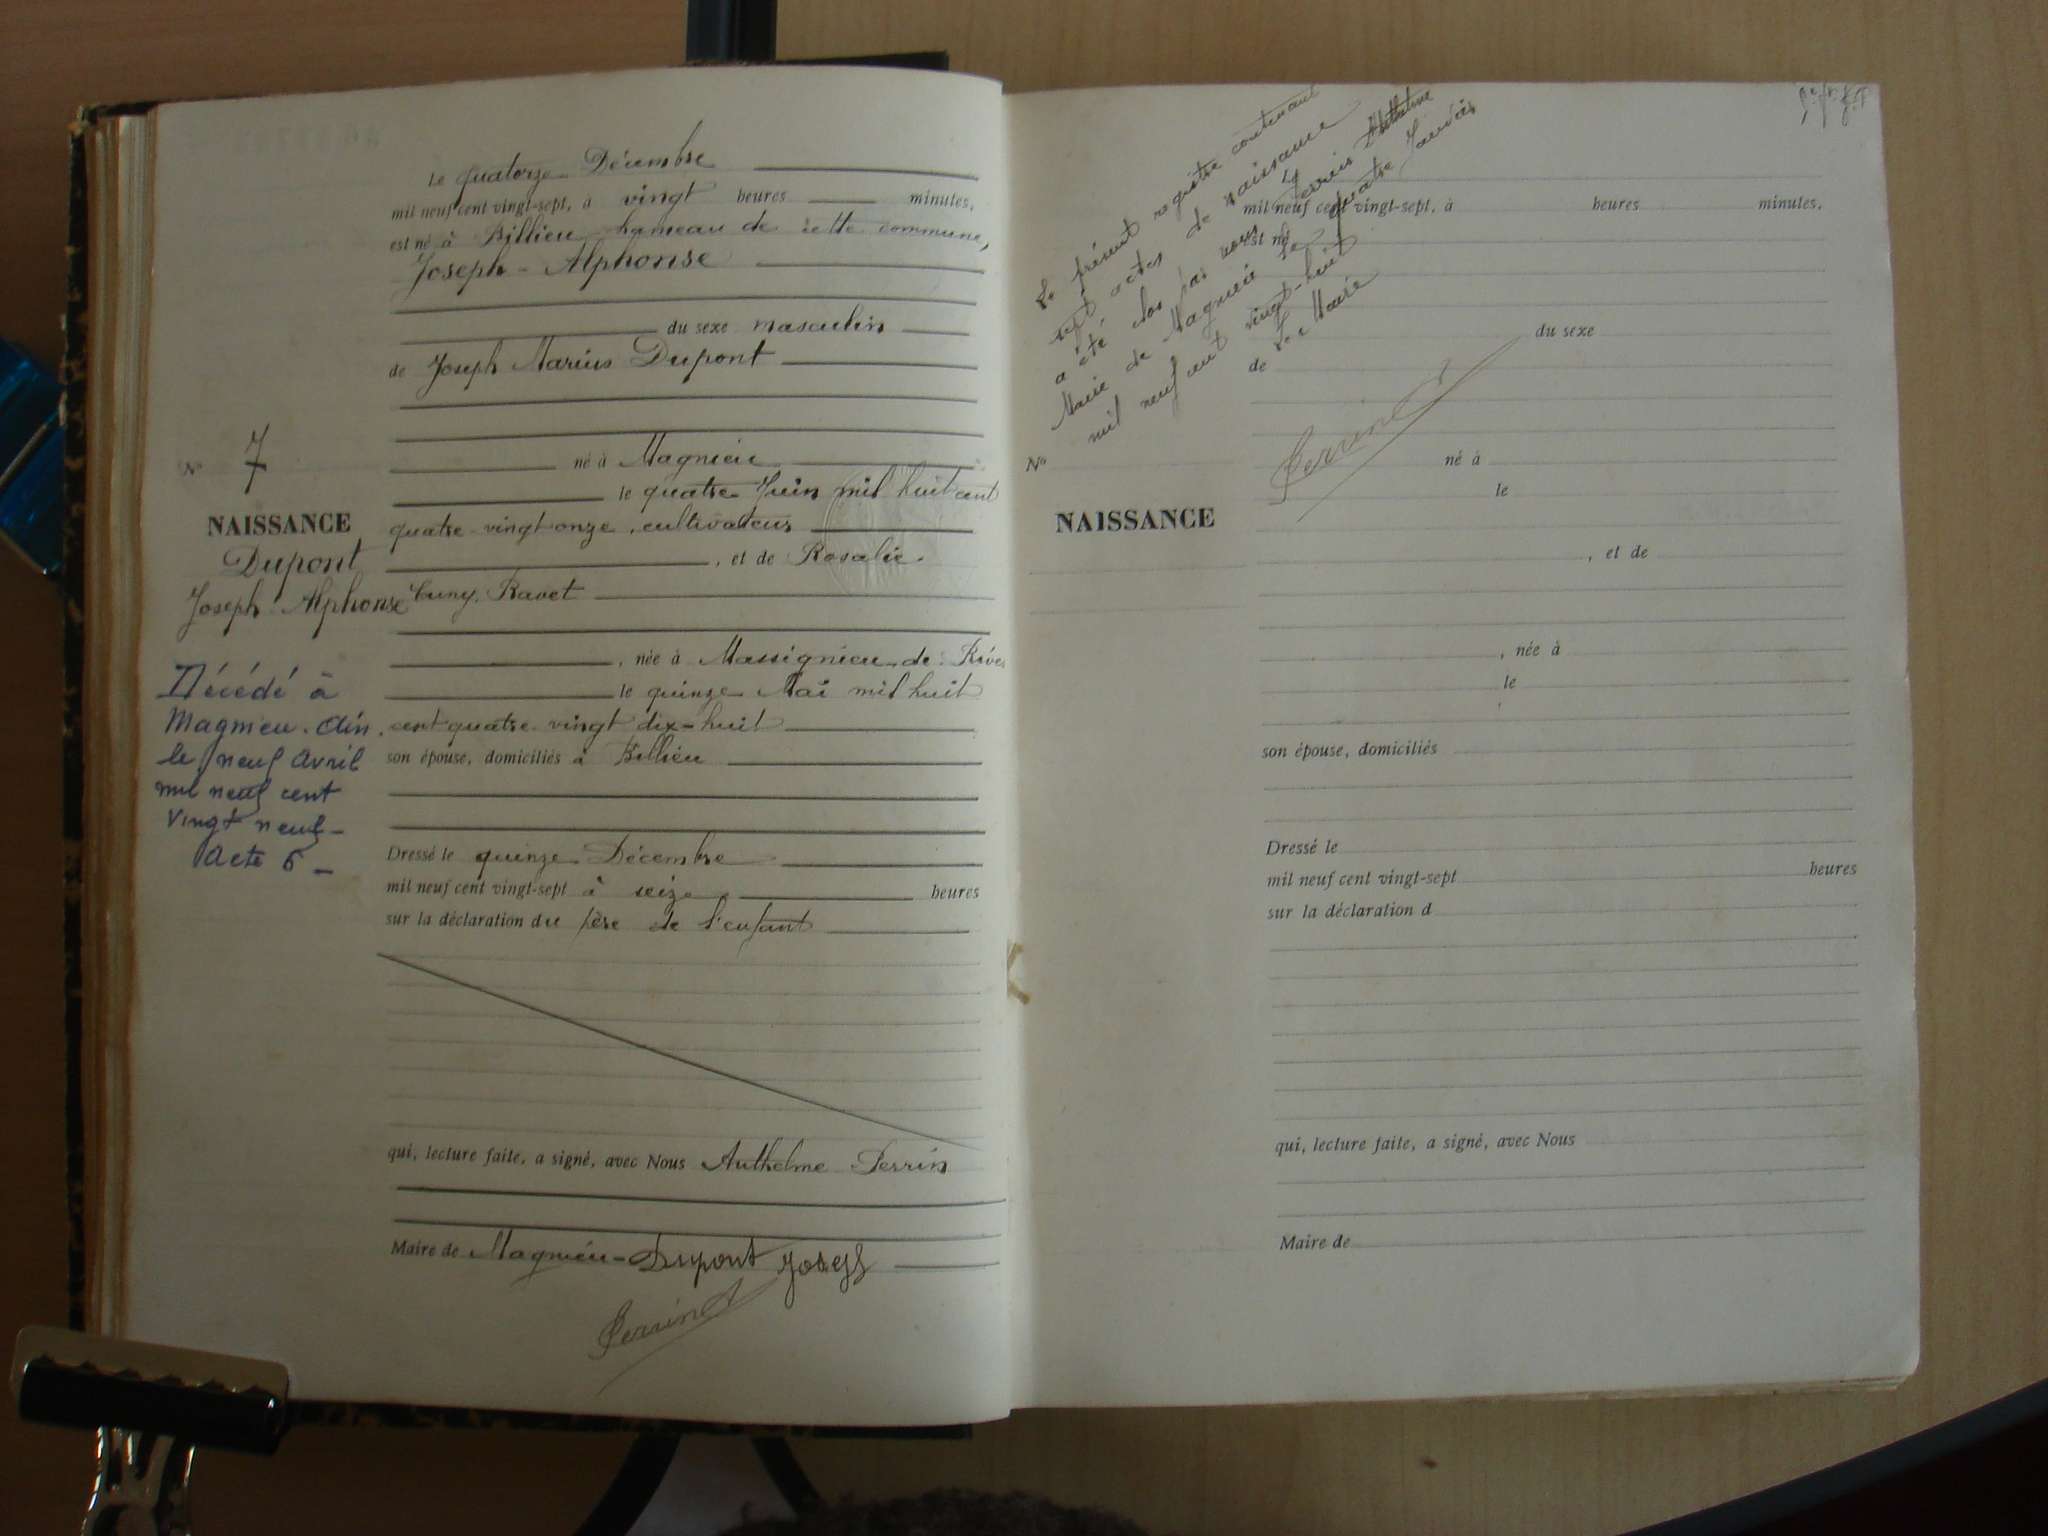 Le quatorze Décembre
mil neuf cent vingt-sept, à vingt heures minutes,
est né à Billieu hameau de cette commune,
Joseph-Alphonse
du sexe masculin
de Joseph Marius Dupont
né à Magnieu
le quatre Juin mil huit cent
quatre-vingt onze, cultivateur
, et de Rosalie
Cuny. Ravet
, née à Massignieu-de-Rives
le quinze Mai mil huit
cent quatre-vingt dix-huit
son épouse, domiciliés à Billieu
Dressé le quinze Décembre
mil neuf cent vingt-sept à seize heures
sur la déclaration du père de l'enfant
qui, lecture faite, a signé, avec Nous Anthelme Perrin
Maire de Magnieu - Dupont Joseph
Perrin A
No 7
NAISSANCE
Dupont
Joseph Alphonse
Décédé à
Magnieu. Ain.
le neuf Avril
mil neuf cent
vingt neuf -
Acte 6 -
Le présent registre contenant
sept actes de naissance
a été clos par nous Perrin Anthelme
Mairie de Magnieu le quatre Janvier
mil neuf cent vingt-huit
Le Maire
Perrin A
mil neuf cent vingt-sept, à heures minutes,
est né
du sexe
de
No
né à
le
NAISSANCE
, et de
, née à
le
son épouse, domiciliés
Dressé le
mil neuf cent vingt-sept heures
sur la déclaration d
qui, lecture faite, a signé, avec Nous
Maire de